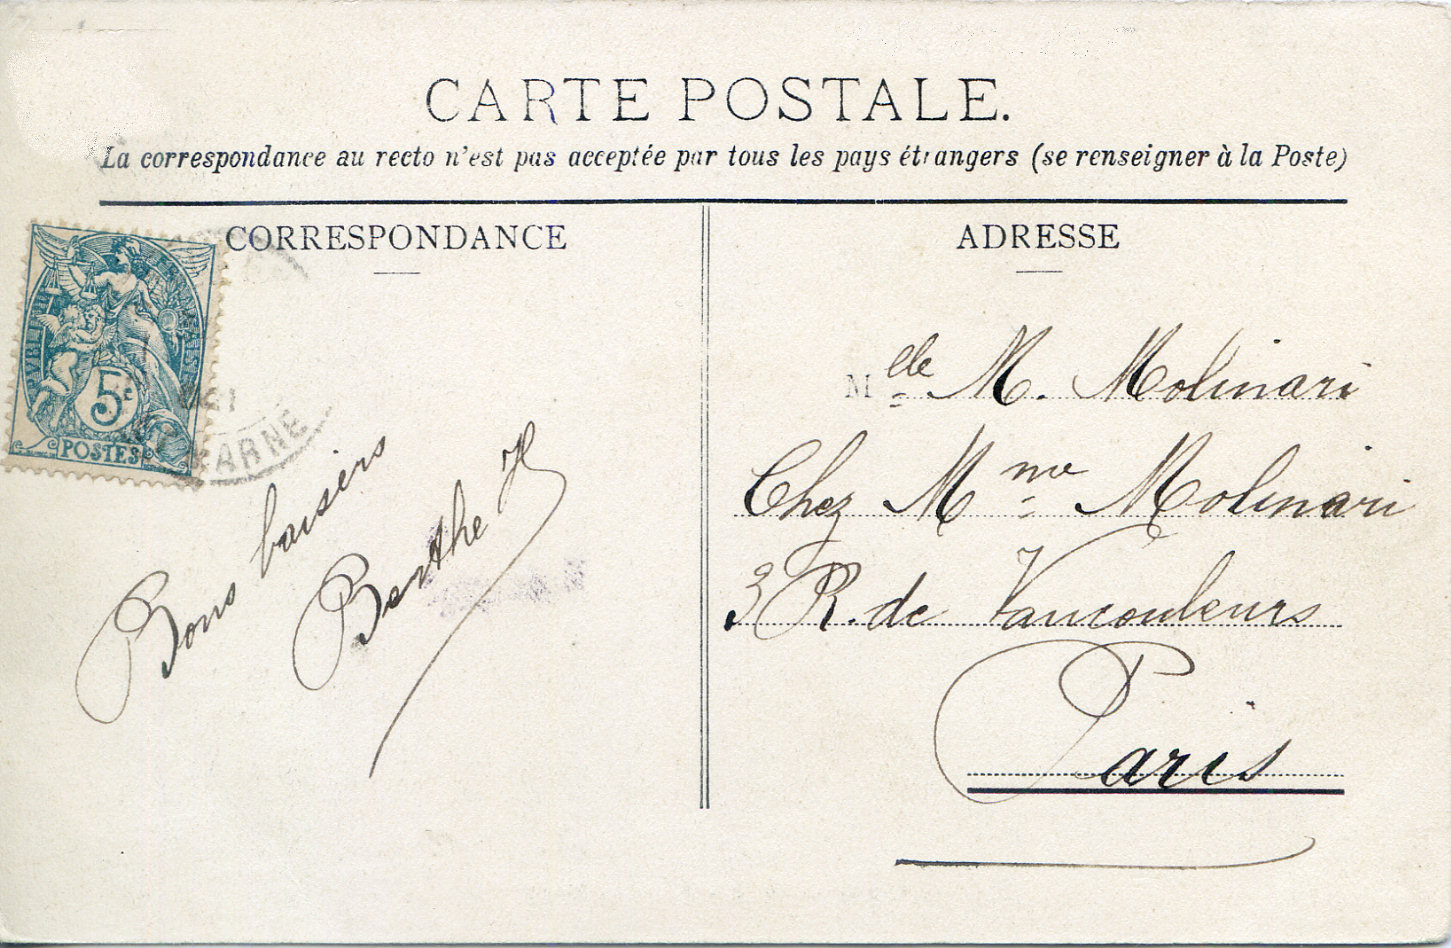 CARTE POSTALE.
La correspondance au recto n'est pas acceptée par tous les pays étrangers (se renseigner à la Poste)
CORRESPONDANCE
5c
POSTES
ARNE
Bons baisers
Berthe H
ADRESSE
Melle M. Molinari
Chez Mme Molinari
3 R. de Vaucouleurs
Paris